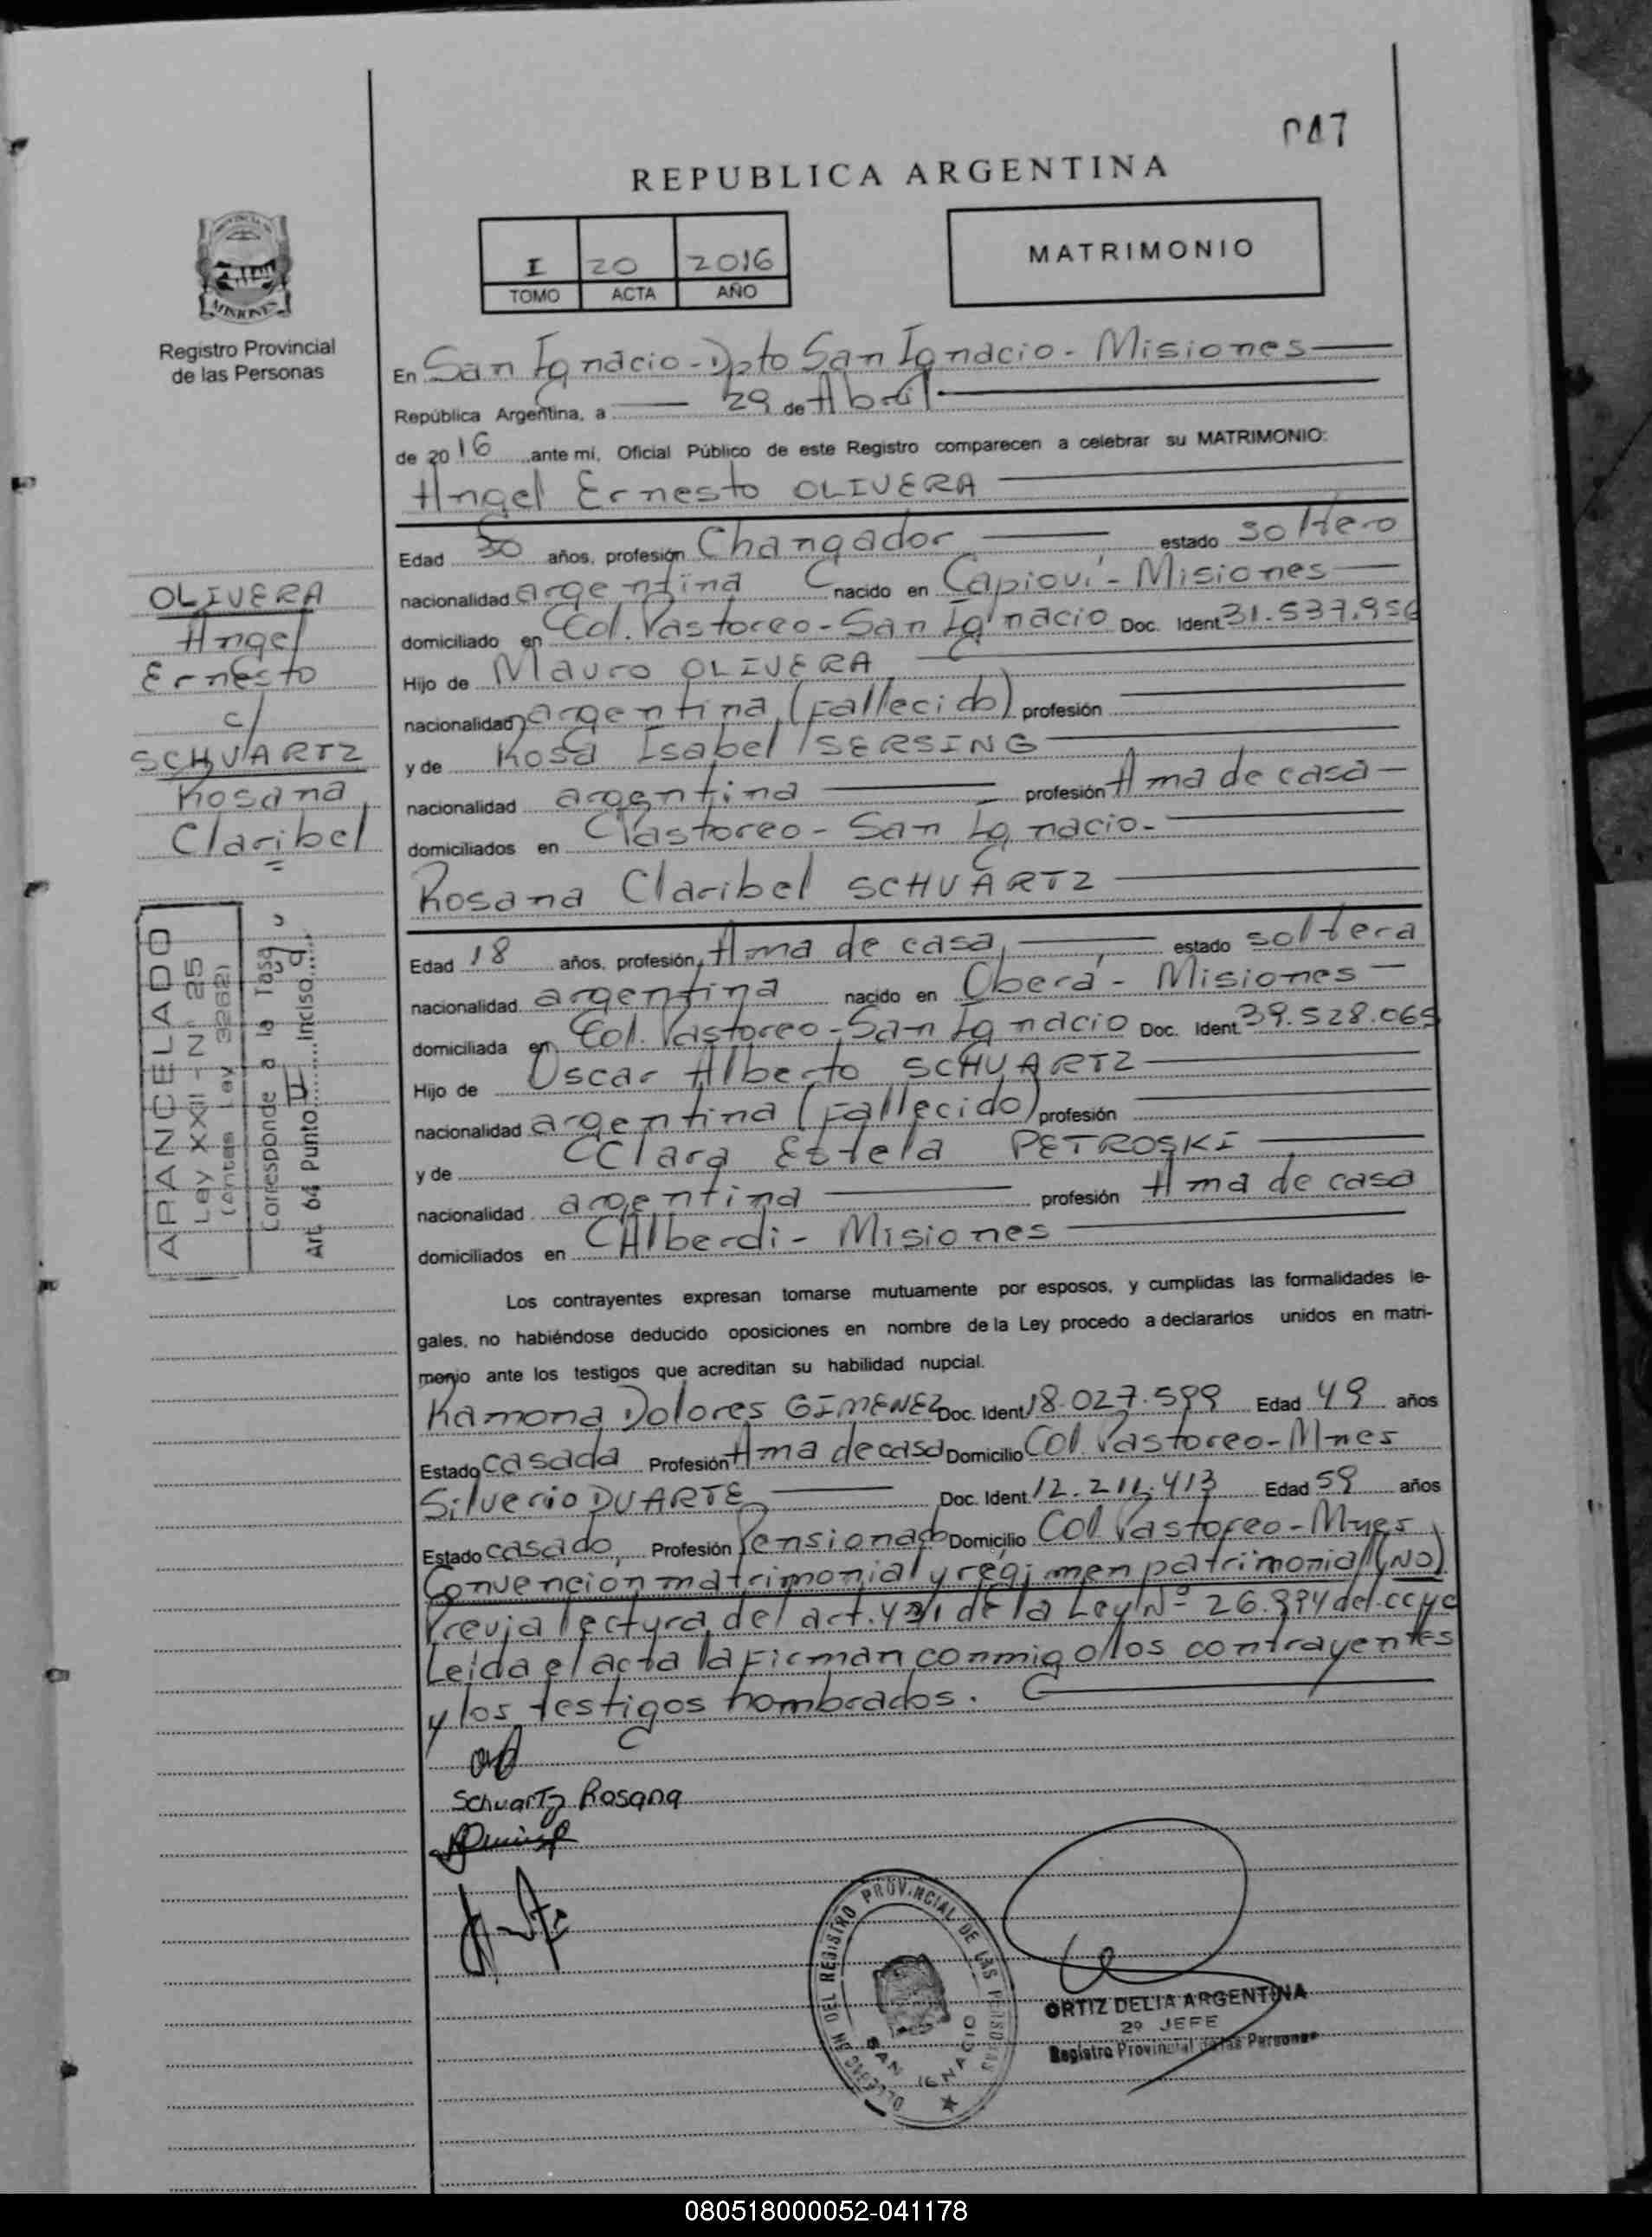 047
REPUBLICA ARGENTINA
I 20 2016
TOMO ACTA AÑO
MATRIMONIO
PROVINCIA DE
MISIONES
Registro Provincial
de las Personas
En San Ignacio - Dpto San Ignacio - Misiones
República Argentina, a 29 de Abril
de 2016 ante mí, Oficial Público de este Registro comparecen a celebrar su MATRIMONIO:
Angel Ernesto OLIVERA
Edad 30 años, profesión Changador estado soltero
nacionalidad argentina nacido en Capioví - Misiones
domiciliado en Col. Pastoreo - San Ignacio Doc. Ident 31.537.956
Hijo de Mauro OLIVERA
nacionalidad argentina (Fallecido) profesión
y de Rosa Isabel SERSING
nacionalidad argentina profesión Ama de casa
domiciliados en Pastoreo - San Ignacio -
Rosana Claribel SCHVARTZ
Edad 18 años, profesión Ama de casa, estado soltera
nacionalidad argentina nacido en Oberá - Misiones
domiciliada en Col. Pastoreo - San Ignacio Doc. Ident. 39.528.065
Hijo de Oscar Alberto SCHVARTZ
nacionalidad argentina (Fallecido) profesión
y de Clara Estela PETROSKI
nacionalidad argentina profesión Ama de casa
domiciliados en Alberdi - Misiones
Los contrayentes expresan tomarse mutuamente por esposos, y cumplidas las formalidades le-
gales, no habiéndose deducido oposiciones en nombre de la Ley procedo a declararlos unidos en matri-
monio ante los testigos que acreditan su habilidad nupcial.
Ramona Dolores GIMENEZ Doc. Ident 18.027.599 Edad 49 años
Estado casada Profesión Ama de casa Domicilio Col. Pastoreo - Mnes
Silverio DUARTE Doc. Ident. 12.211.413 Edad 59 años
Estado casado, Profesión Pensionado Domicilio Col Pastoreo - Mnes
Convención matrimonial y régimen patrimonial (NO)
Previa lectura del art. 431 de la Ley Nº 26.994 del CCyC
Leída el acta la Firman conmigo los contrayentes
y los testigos nombrados.
Schuartz Rosana
OLIVERA
Angel
Ernesto
c/
SCHVARTZ
Rosana
Claribel
ARANCELADO
Ley XXII - Nº 25
(Antes Ley 3262)
Corresponde a la Tasa
Art. 64 Punto II Inciso
DEL REGISTRO PROVINCIAL DE LAS PERSONAS
SAN IGNACIO
ORTIZ DELIA ARGENTINA
2º JEFE
Registro Provincial de las Personas
080518000052-041178